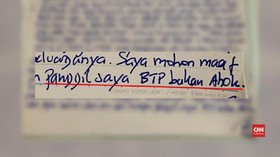 eluarganya. Saya mohon maaf
n panggil saya BTP bukan Ahok.
CNN